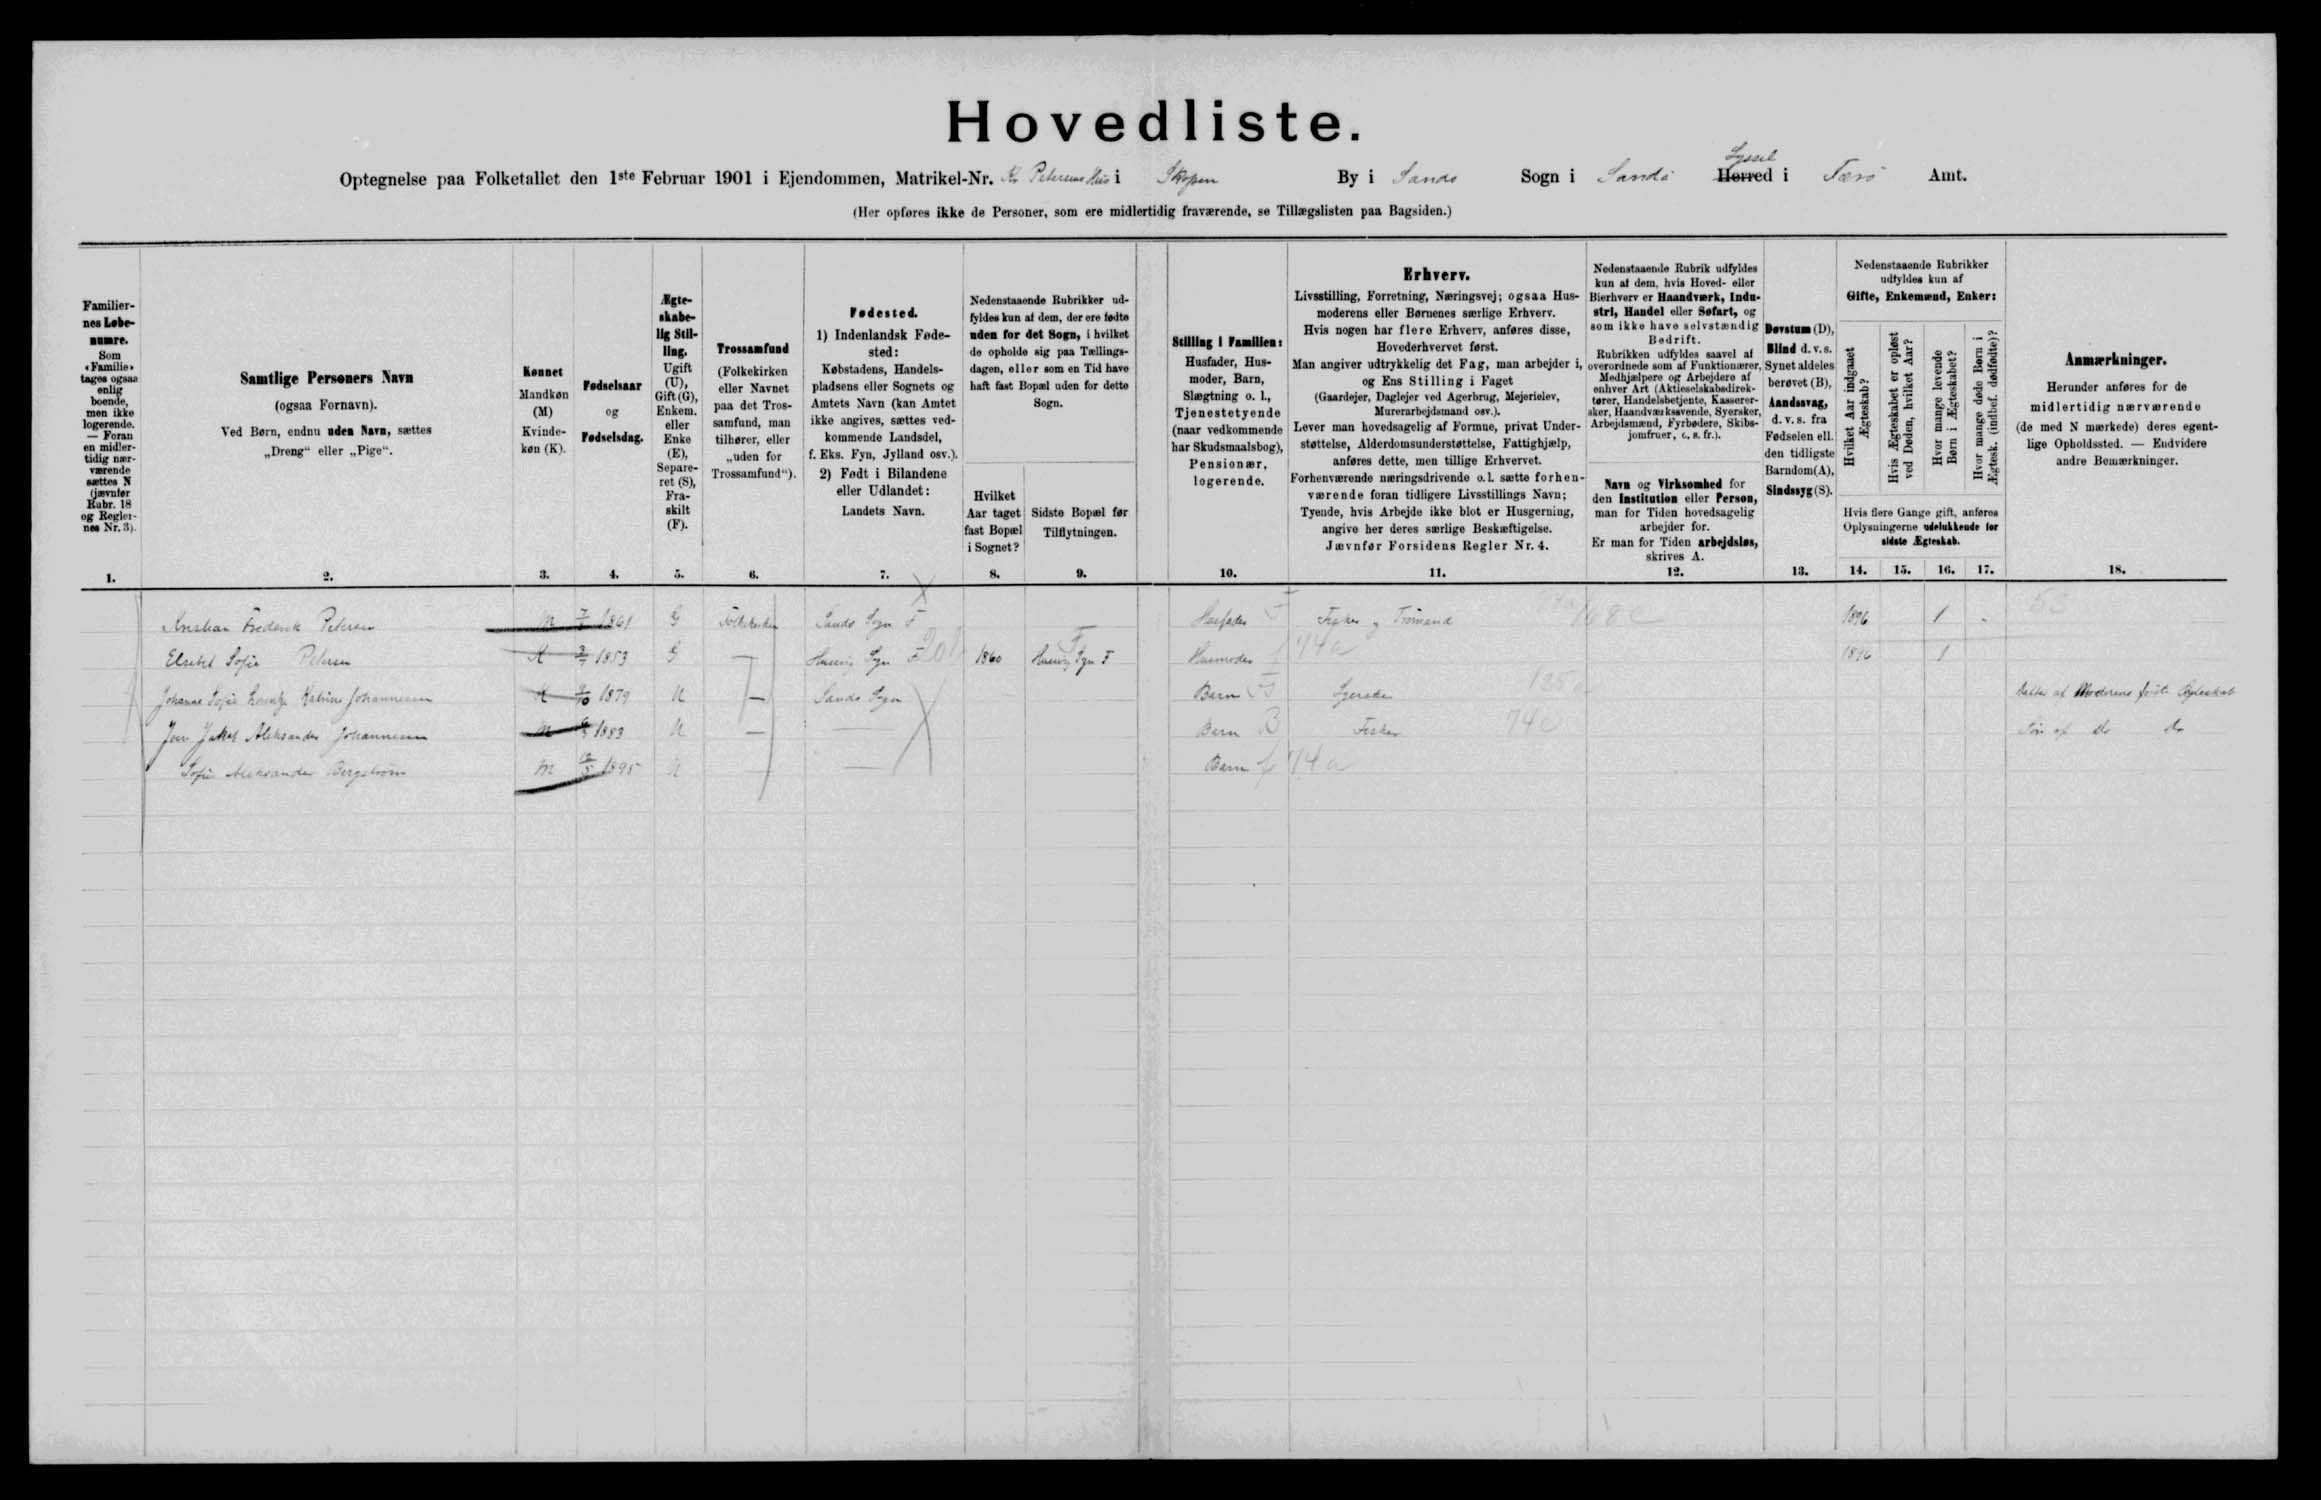 Hovedliste.
Optegnelse paa Folketallet den 1ste Februar 1901 i Ejendommen, Matrikel-Nr. Kr. Petersens Hus i Skopen By i Sands Sogn i Sandø Syssel Herred i Færø Amt.
(Her opføres ikke de Personer, som ere midlertidig fraværende, se Tillægslisten paa Bagsiden.)
Familier-
nes Løbe-
numre.
Som
«Familie»
tages ogsaa
enlig
boende,
men ikke
logerende.
— Foran
en midler-
tidig nær-
værende
sættes N
(jævnfør
Rubr. 18
og Regler-
nes Nr. 3).
1.
Samtlige Personers Navn
(ogsaa Fornavn).
Ved Børn, endnu uden Navn, sættes
„Dreng“ eller „Pige“.
2.
Kønnet
Mandkøn
(M)
Kvinde-
køn (K).
3.
Fødselsaar
og
Fødselsdag.
4.
Ægte-
skabe-
lig Stil-
ling.
Ugift
(U),
Gift (G),
Enkem.
eller
Enke
(E),
Separe-
ret (S),
Fra-
skilt
(F).
5.
Trossamfund
(Folkekirken
eller Navnet
paa det Tros-
samfund, man
tilhører, eller
„uden for
Trossamfund“).
6.
Fødested.
1) IndenlandskFøde-
sted:
Købstadens, Handels-
pladsens eller Sognets og
Amtets Navn (kan Amtet
ikke angives, sættes ved-
kommende Landsdel,
f. Eks. Fyn, Jylland osv.).
2) Født i Bilandene
eller Udlandet:
Landets Navn.
7.
Nedenstaaende Rubrikker ud-
fyldes kun af dem, der ere fødte
uden for det Sogn, i hvilket
de opholde sig paa Tællings-
dagen, eller som en Tid have
haft fast Bopæl uden for dette
Sogn.
Hvilket
Aar taget
fast Bopæl
i Sognet?
8.
Sidste Bopæl før
Tilflytningen.
9.
Stilling i Familien:
Husfader, Hus-
moder, Barn,
Slægtning o. l.,
Tjenestetyende
(naar vedkommende
har Skudsmaalsbog),
Pensionær,
logerende.
10.
Erhverv.
Livsstilling, Forretning, Næringsvej; ogsaa Hus-
moderens eller Børnenes særlige Erhverv.
Hvis nogen har flere Erhverv, anføres disse,
Hovederhvervet først.
Man angiver udtrykkelig det Fag, man arbejder i,
og Ens Stilling i Faget
(Gaardejer, Daglejer ved Agerbrug, Mejerielev,
Murerarbejdsmand osv.).
Lever man hovedsagelig af Formue, privat Under-
støttelse, Alderdomsunderstøttelse, Fattighjælp,
anføres dette, men tillige Erhvervet.
Forhenværende næringsdrivende o. l. sætte forhen-
værende foran tidligere Livsstillings Navn;
Tyende, hvis Arbejde ikke blot er Husgerning,
angive her deres særlige Beskæftigelse.
Jævnfør Forsidens Regler Nr. 4.
11.
Nedenstaaende Rubrik udfyldes
kun af dem, hvis Hoved- eller
Bierhverv er Haandværk, Indu-
stri, Handel eller Søfart, og
som ikke have selvstændig
Bedrift.
Rubrikken udfyldes saavel af
overordnede som af Funktionærer,
Medhjælpere og Arbejdere af
enhver Art (Aktieselskabsdirek-
tører, Handelsbetjente, Kasserer-
sker, Haandværkssvende, Syersker,
Arbejdsmænd, Fyrbødere, Skibs-
jomfruer, o. s. fr.).
Navn og Virksomhed for
den Institution eller Person,
man for Tiden hovedsagelig
arbejder for.
Er man for Tiden arbejdsløs,
skrives A.
12.
Døvstum (D),
Blind d. v. s.
Synet aldeles
berøvet (B),
Aandssvag,
d. v. s. fra
Fødselen ell.
den tidligste
Barndom (A),
Sindssyg (S).
13.
Nedenstaaende Rubrikker
udfyldes kun af
Gifte, Enkemænd, Enker:
Hvilket Aar indgaaet
Ægteskab?
Hvis Ægteskabet er opløst
ved Døden, hvilket Aar?
Hvor mange levende
Børn i Ægteskabet?
Hvor mange døde Børn i
Ægtesk. (indbef. dødfødte)?
Hvis flere Gange gift, anføres
Oplysningerne udelukkende for
sidste Ægteskab.
14. 15. 16. 17.
Anmærkninger.
Herunder anføres for de
midlertidig nærværende
(de med N mærkede) deres egent-
lige Opholdssted. — Endvidere
andre Bemærkninger.
18.
Kristian Frederik Petersen M 1861 G Folkekirken Sands Sogn F Husfader Fisker og Tømmand 168 c 1896 1 -
Elsebet Sofie Petersen K 1853 G — Husevig Sogn F 1860 Husevig Sogn F Husmoder 74a 1896 1
Johanne Sofie Katrine Johannesen K 1879 U — Sands Sogn Barn Syerske Datter af Moderens første Ægteskab
Jens Jakob Aleksander Johannesen M 1883 U — — Barn Fisker 74c Søn af do do
Sofus Aleksander Bergstrøm M 1895 U — — Barn 74a